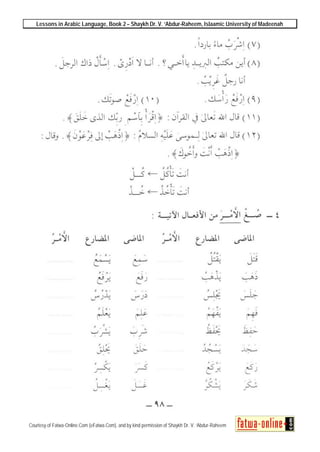 Lessons in Arabic Language, Book 2 – Shaykh Dr. V. 'Abdur-Raheem, Islaamic University of Madeenah
(٧) اِشْرَبْ ماءً بارداً.
(٨) أين مكتبُ البريـدِ يا أَخـي؟ . أنـا لا أَدْرِىْ. اِسْأَلْ ذاك الرجلَ.
أنا رجلٌ غَرِيْبٌ.
(٩) اِرْفَعْ رَأْسَك. (١٠) اِرْفَعْ صوتَك.
(١١) قال الله تَعالَى في القرآن : ﴿اِقْرَأْ بِاسْمِ رَبِّك الذى خَلَقَ﴾.
(١٢) قال الله تعالى لِـموسى عَلَيْهِ السلامُ : ﴿اِذْهَبْ إلى فِرْعَوْنَ﴾. وقال :
﴿اِذْهَبْ أَنْتَ وَأَخُوْكَ﴾.
أنتَ تَأْكُلُ ← كُــلْ
أنتَ تَأْخُذُ ← خُــذْ
٤ ــ صُــغْ الأَمْــرَ من الأفعـال الآتيـة :
الماضى المضارع الأَمْـرُ الماضى المضارع الأَمْـرُ
قَتَلَ يَقْتُلُ ............ سَمِعَ يَسْمَعُ ............
ذَهَبَ يَذْهَبُ ............ رَفَعَ يَرْفَعُ ............
جَلَسَ يَجْلِسُ ............ دَرَسَ يَدْرُسُ ............
فَهِمَ يَفْهَمُ ............ عَلِمَ يَعْلَمُ ............
حَفِظَ يَحْفَظُ ............ شَرِبَ يَشْرَبُ ............
سَجَدَ يَسْجُدُ ............ حَلَقَ يَحْلِقُ ............
رَكَعَ يَرْكَعُ ............ كَسَرَ يَكْسِـرُ ............
شَكَرَ يَشْكُرُ ............ غَسَـلَ يَغْسِـلُ ............
ــ ٩٨ ــ
Courtesy of Fatwa-Online.Com (eFatwa.Com), and by kind permission of Shaykh Dr. V. 'Abdur-Raheem
fatwa-online.com